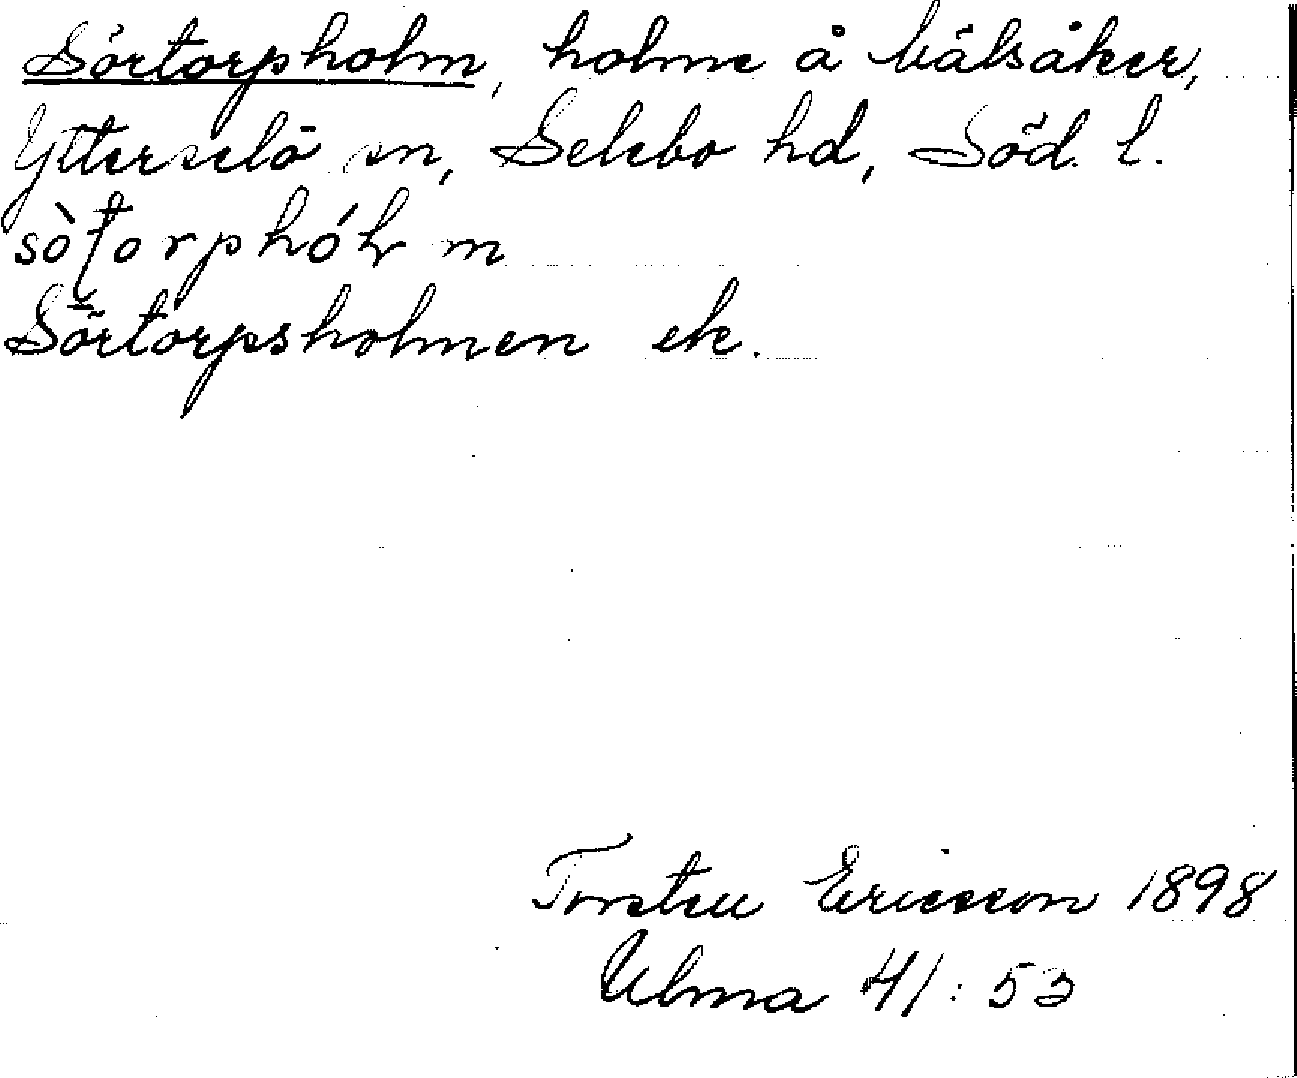 Sörtorpholm, holme å Välsåker,
Ytterselö sn, Selebo hd, Söd. l.
Sörtorpsholmen ek.
Torsten Ericsson 1898
Ulma 41:53